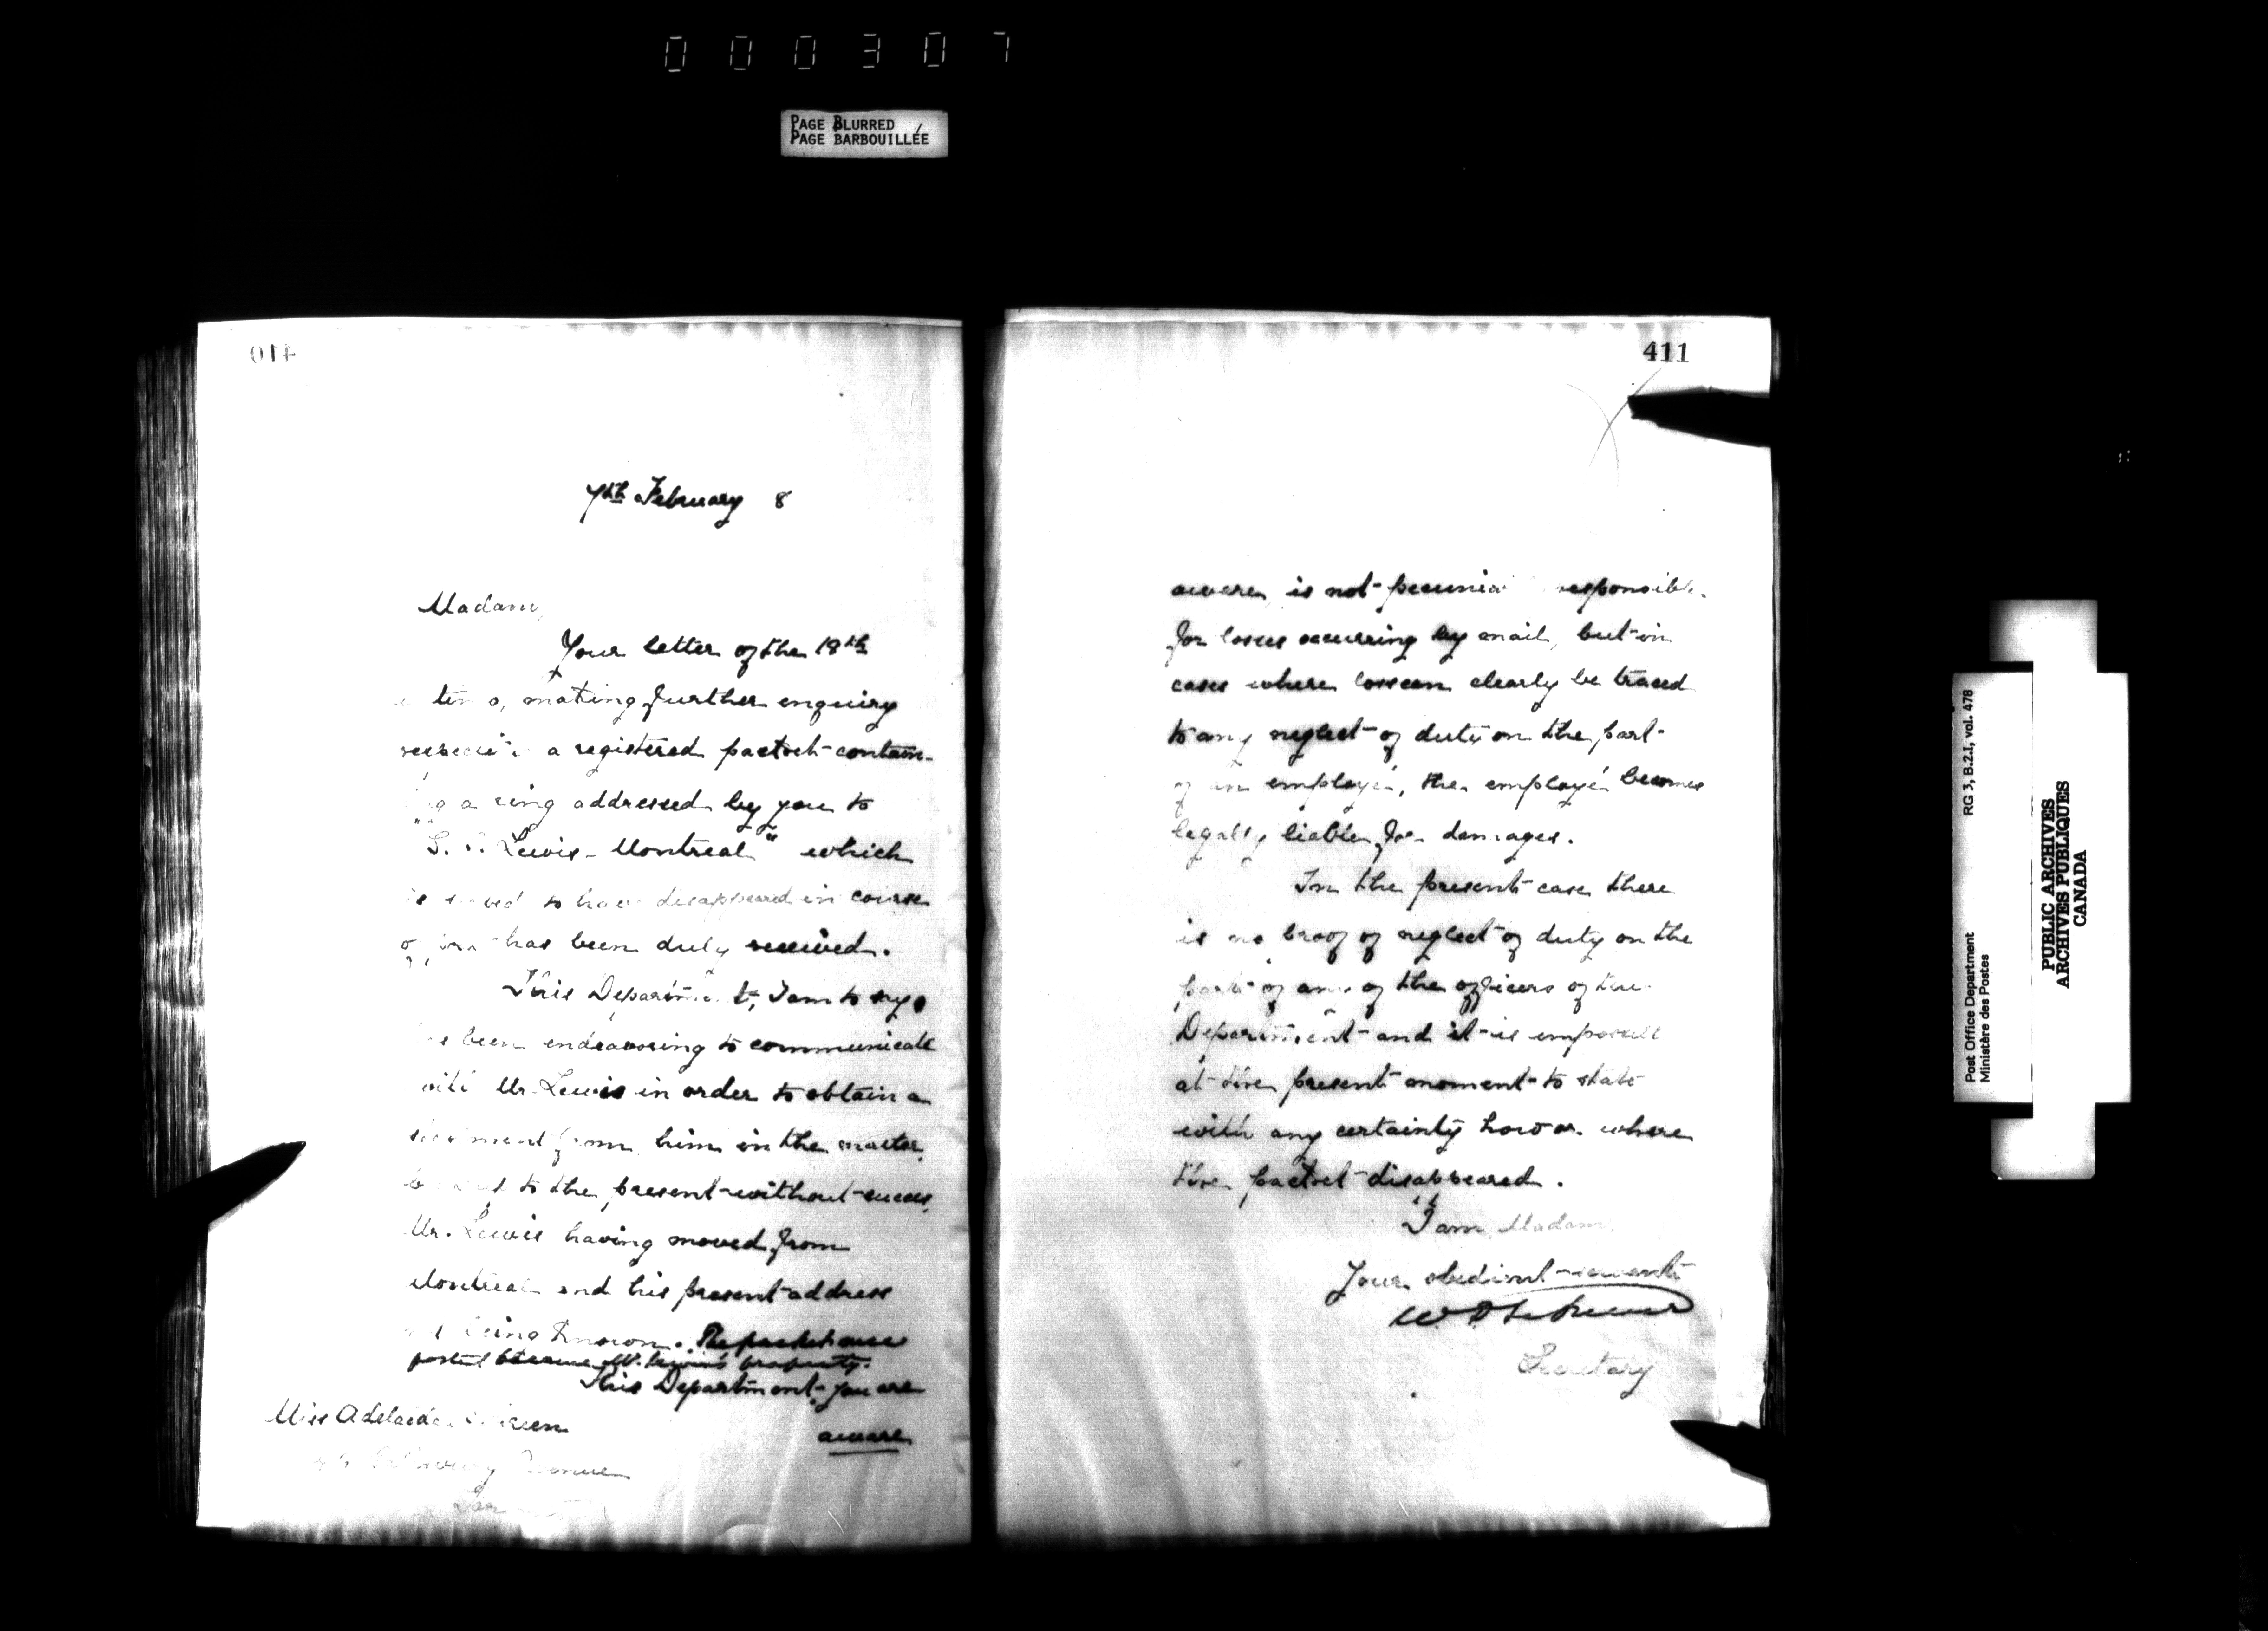 000307
PAGE BLURRED
PAGE BARBOUILLÉE
410
7th February 8
Madam,
Your letter of the 18th
making further enquiry
a registered packet contain-
a ring addressed by you to
Lewis - Montreal" which
to have disappeared in course
has been duly received.
This Department, I am to say,
been endeavoring to communicate
with Mr. Lewis in order to obtain a
statement from him in the matter,
to the present without success,
Mr. Lewis having moved from
Montreal and his present address
being known. The packet once
posted became Mr. Lewis's property.
This Department, you are
aware
Miss Adelaide
Avenue
411
aware, is not responsible
for losses occurring by mail, but in
cases where loss can clearly be traced
to any neglect of duty on the part
of an employé, the employé becomes
legally liable for damages.
In the present case there
is no proof of neglect of duty on the
part of any of the officers of the
Department and it is impossible
at the present moment to state
with any certainty how or where
the packet disappeared.
I am, Madam,
Your obedient servant
Secretary
Post Office Department
Ministère des Postes
RG 3, B.2.I, vol. 478
PUBLIC ARCHIVES
ARCHIVES PUBLIQUES
CANADA